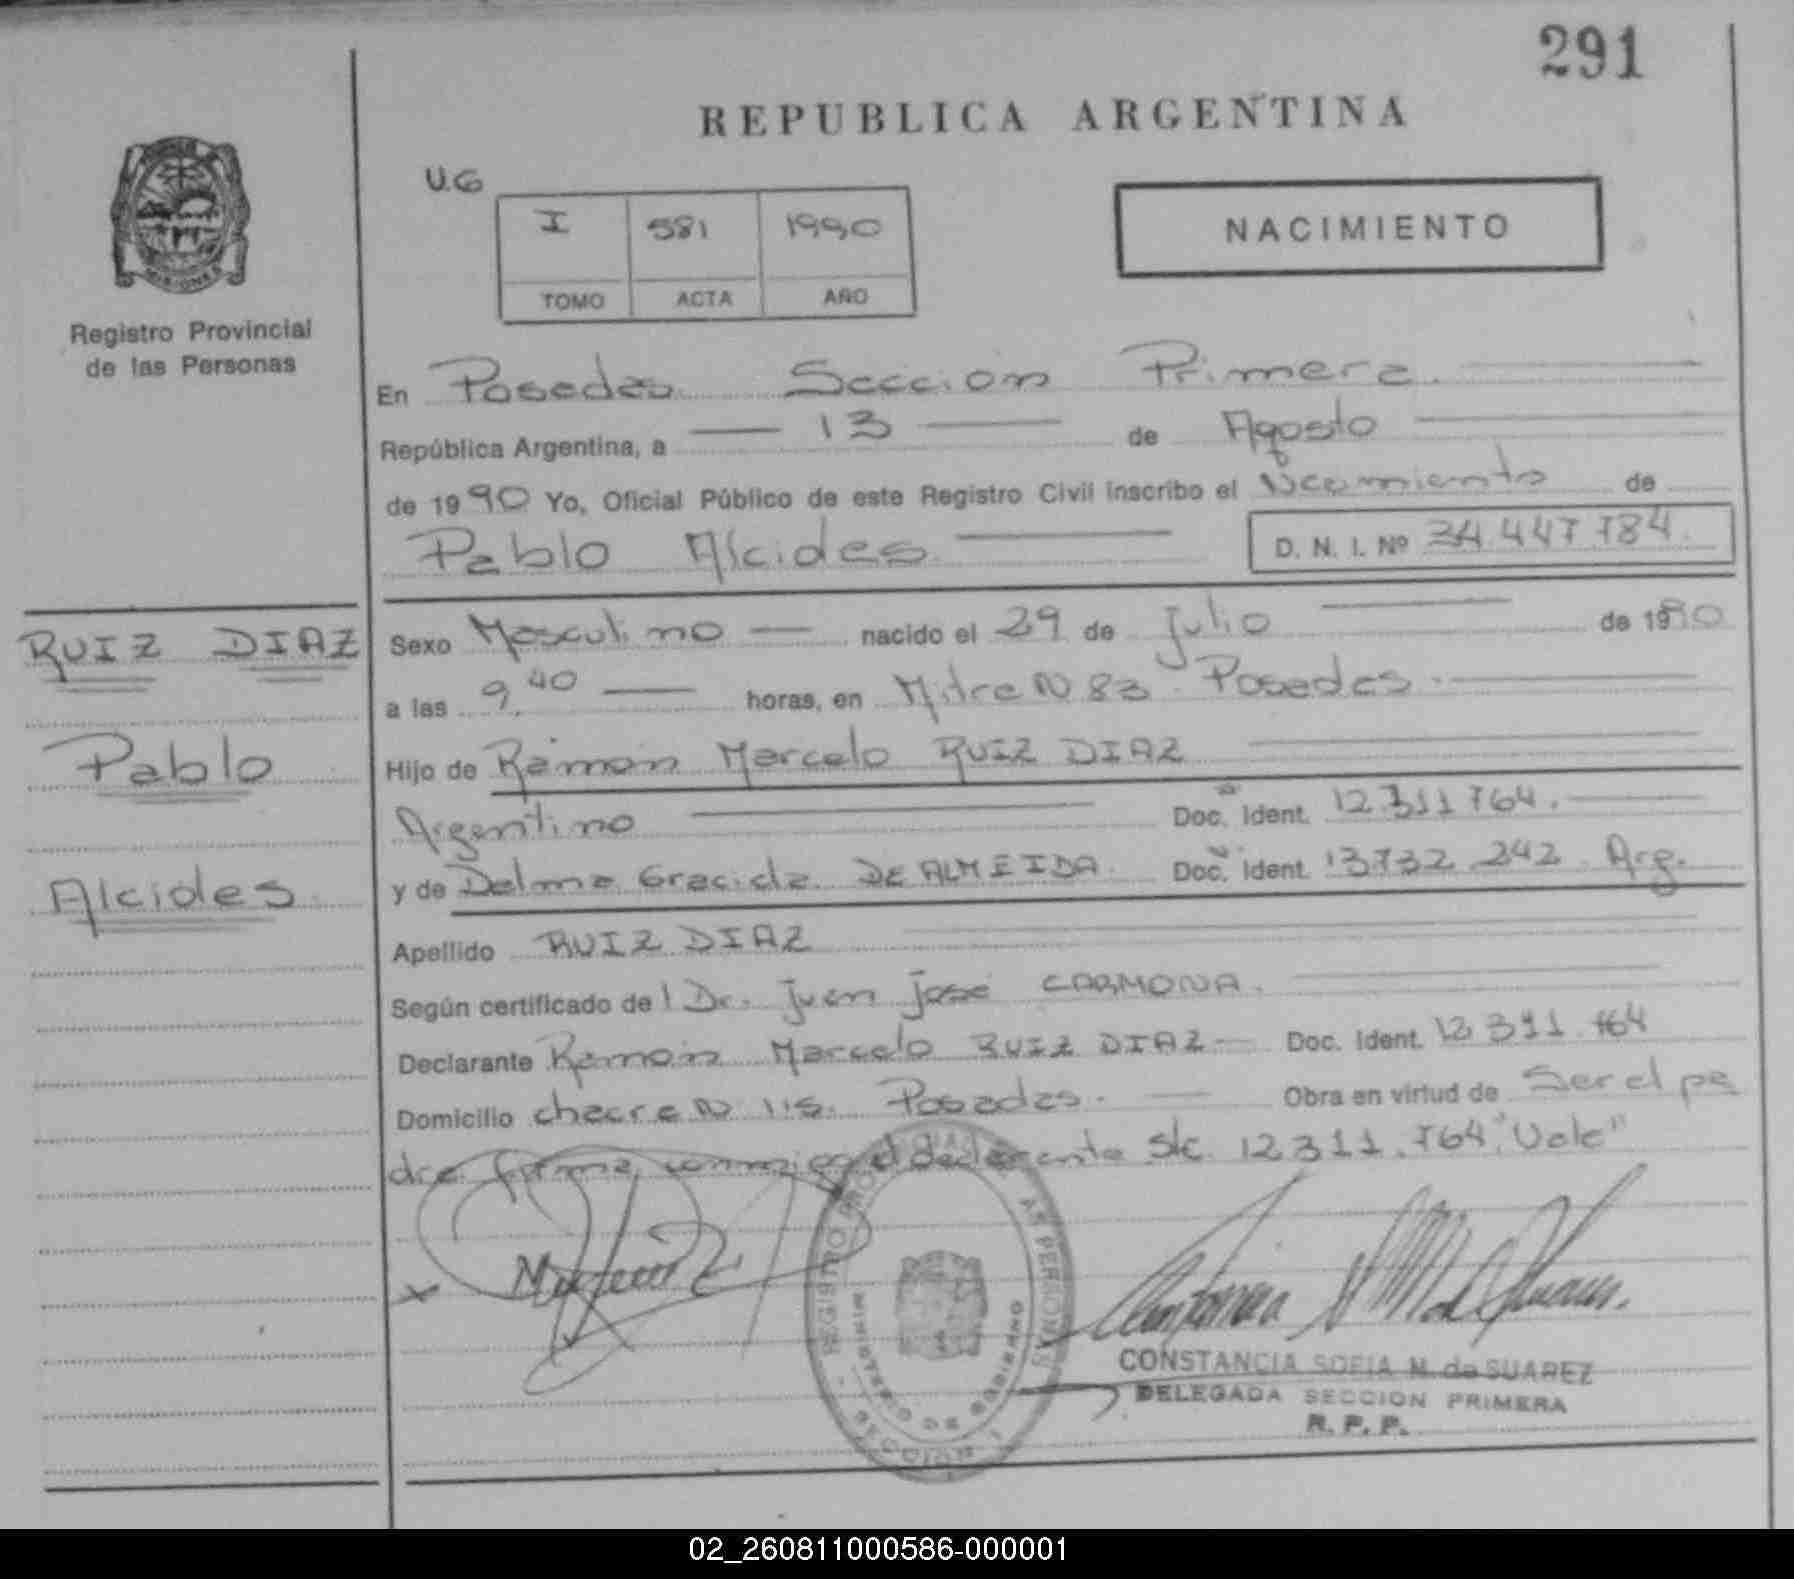 291
REPUBLICA ARGENTINA
U.G
I 581 1990
TOMO ACTA AÑO
NACIMIENTO
MISIONES
Registro Provincial
de las Personas
En Posadas Sección Primera.
República Argentina, a 13 de Agosto
de 1990 Yo, Oficial Público de este Registro Civil inscribo el Nacimiento de
Pablo Alcides D. N. I. Nº 34.447.784.
RUIZ DIAZ
Pablo
Alcides
Sexo Masculino nacido el 29 de Julio de 1990
a las 9,40 horas, en Mitre N 83. Posadas.
Hijo de Ramón Marcelo RUIZ DIAZ
Argentino Doc. Ident. 12.311.764.
y de Delma Gracida DE ALMEIDA. Doc. Ident. 13.732.242. Arg.
Apellido RUIZ DIAZ
Según certificado del Dr. Juan José CARMONA.
Declarante Ramón Marcelo RUIZ DIAZ Doc. Ident. 12.311.764
Domicilio chacra N 115. Posadas. Obra en virtud de Ser el pa
dre firma conmigo el declarante S/c. 12.311.764. "Vale"
REGISTRO PROVINCIAL DE LAS PERSONAS
MINISTERIO DE GOBIERNO
SECCION 1
CONSTANCIA SOFIA M. de SUAREZ
DELEGADA SECCION PRIMERA
R. P. P.
02_260811000586-000001